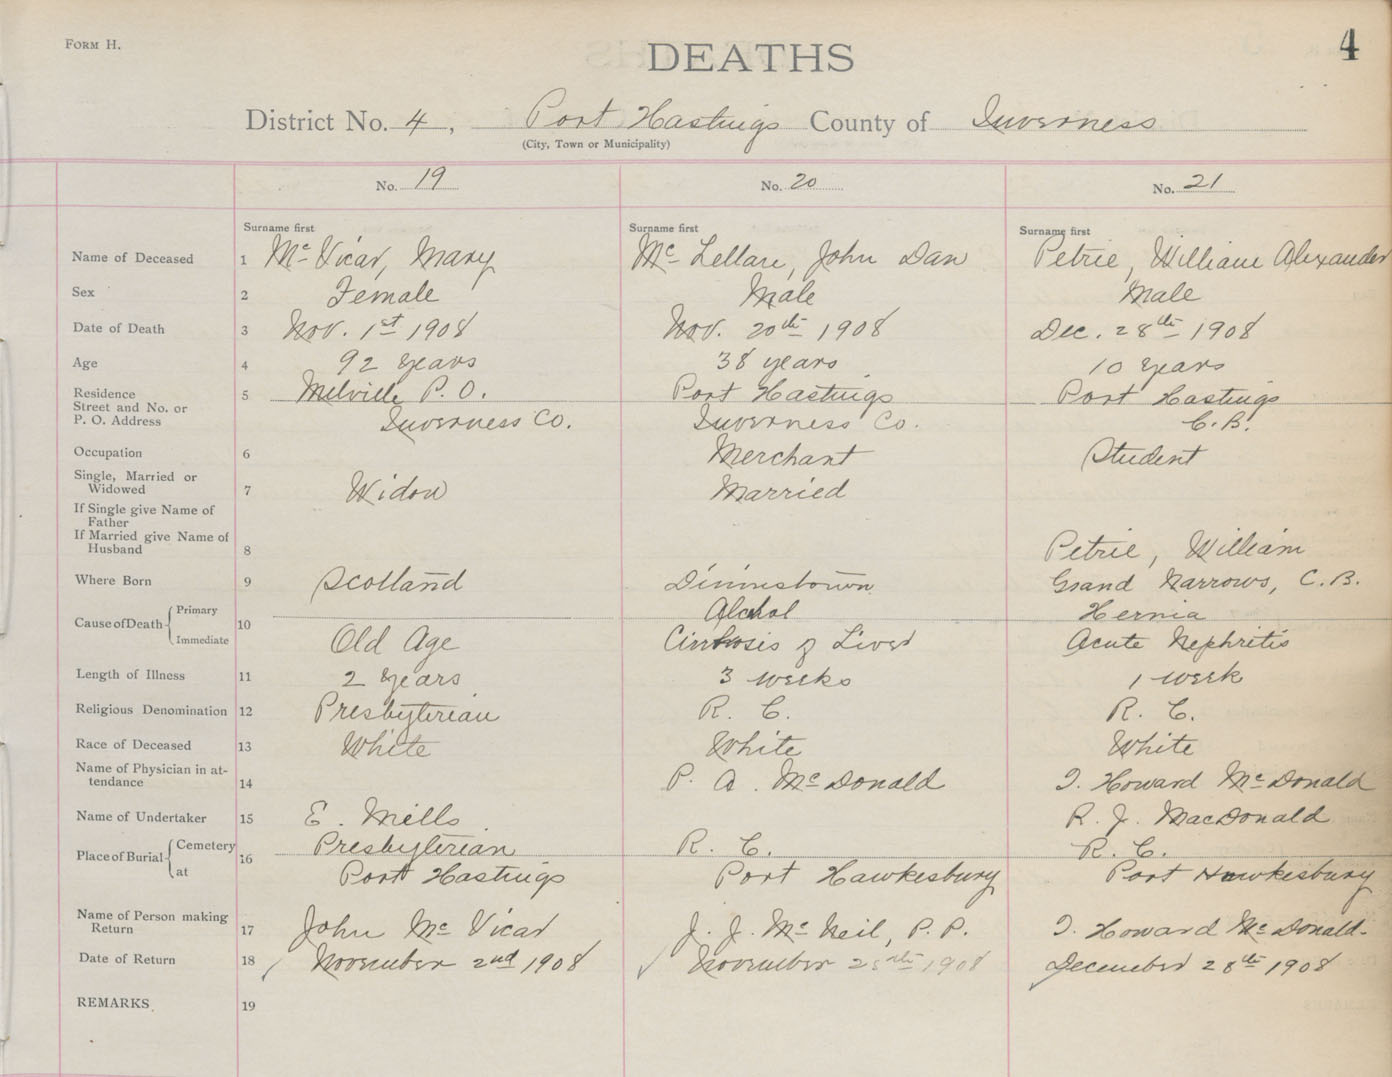 FORM H.
DEATHS
4
District No. 4, Port Hastings County of Inverness
(City, Town or Municipality)
No. 19 No. 20 No. 21
Surname first Surname first Surname first
Name of Deceased 1 Mc Vicar, Mary Mc Lellan, John Dan Petrie, William Alexander
Sex 2 Female Male Male
Date of Death 3 Nov. 1st 1908 Nov. 20th 1908 Dec. 28th 1908
Age 4 92 years 38 years 10 years
Residence
Street and No. or
P. O. Address
5 Melville P. O. Port Hastings Port Hastings
Inverness Co. Inverness Co. C. B.
Occupation 6 Merchant Student
Single, Married or
Widowed 7 Widow Married
If Single give Name of
Father
If Married give Name of
Husband 8 Petrie, William
Where Born 9 Scotland Grand Narrows, C. B.
Cause of Death Primary 10 Alchol Hernia
Immediate Old Age Cirrhosis of Liver Acute Nephritis
Length of Illness 11 2 years 3 weeks 1 week
Religious Denomination 12 Presbyterian R. C. R. C.
Race of Deceased 13 White White White
Name of Physician in at-
tendance 14 P. A. McDonald J. Howard McDonald
Name of Undertaker 15 E. Mills R. J. MacDonald
Place of Burial Cemetery 16 Presbyterian R. C. R. C.
at Port Hastings Port Hawkesbury Port Hawkesbury
Name of Person making
Return 17 John Mc Vicar J. J. McNeil, P. P. J. Howard McDonald.
Date of Return 18 November 2nd 1908 November 1908 December 28th 1908
REMARKS 19